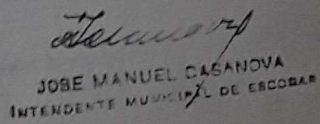 JOSE MANUEL CASANOVA
INTENDENTE MUNICIPAL DE ESCOBAR